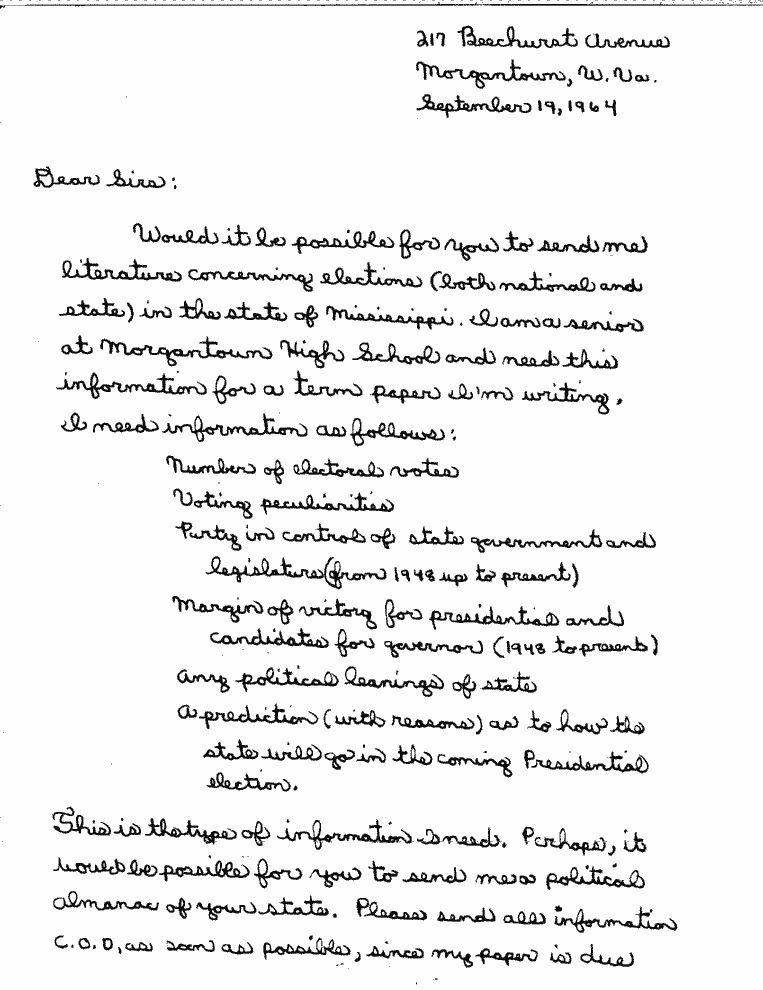 217 Beechurst Avenue
Morgantown, W. Va.
September 19, 1964
Dear Sirs:
Would it be possible for you to send me
literature concerning elections (both national and
state) in the state of Mississippi. I am a senior
at Morgantown High School and need this
information for a term paper I'm writing.
I need information as follows:
Number of electoral votes
Voting peculiarities
Party in control of state government and
legislature (from 1948 up to present)
Margin of victory for presidential and
candidates for governor (1948 to present)
Any political leanings of state
A prediction (with reasons) as to how the
state will go in the coming Presidential
election.
This is the type of information I need. Perhaps, it
would be possible for you to send me a political
almanac of your state. Please send all information
C.O.D, as soon as possible, since my paper is due